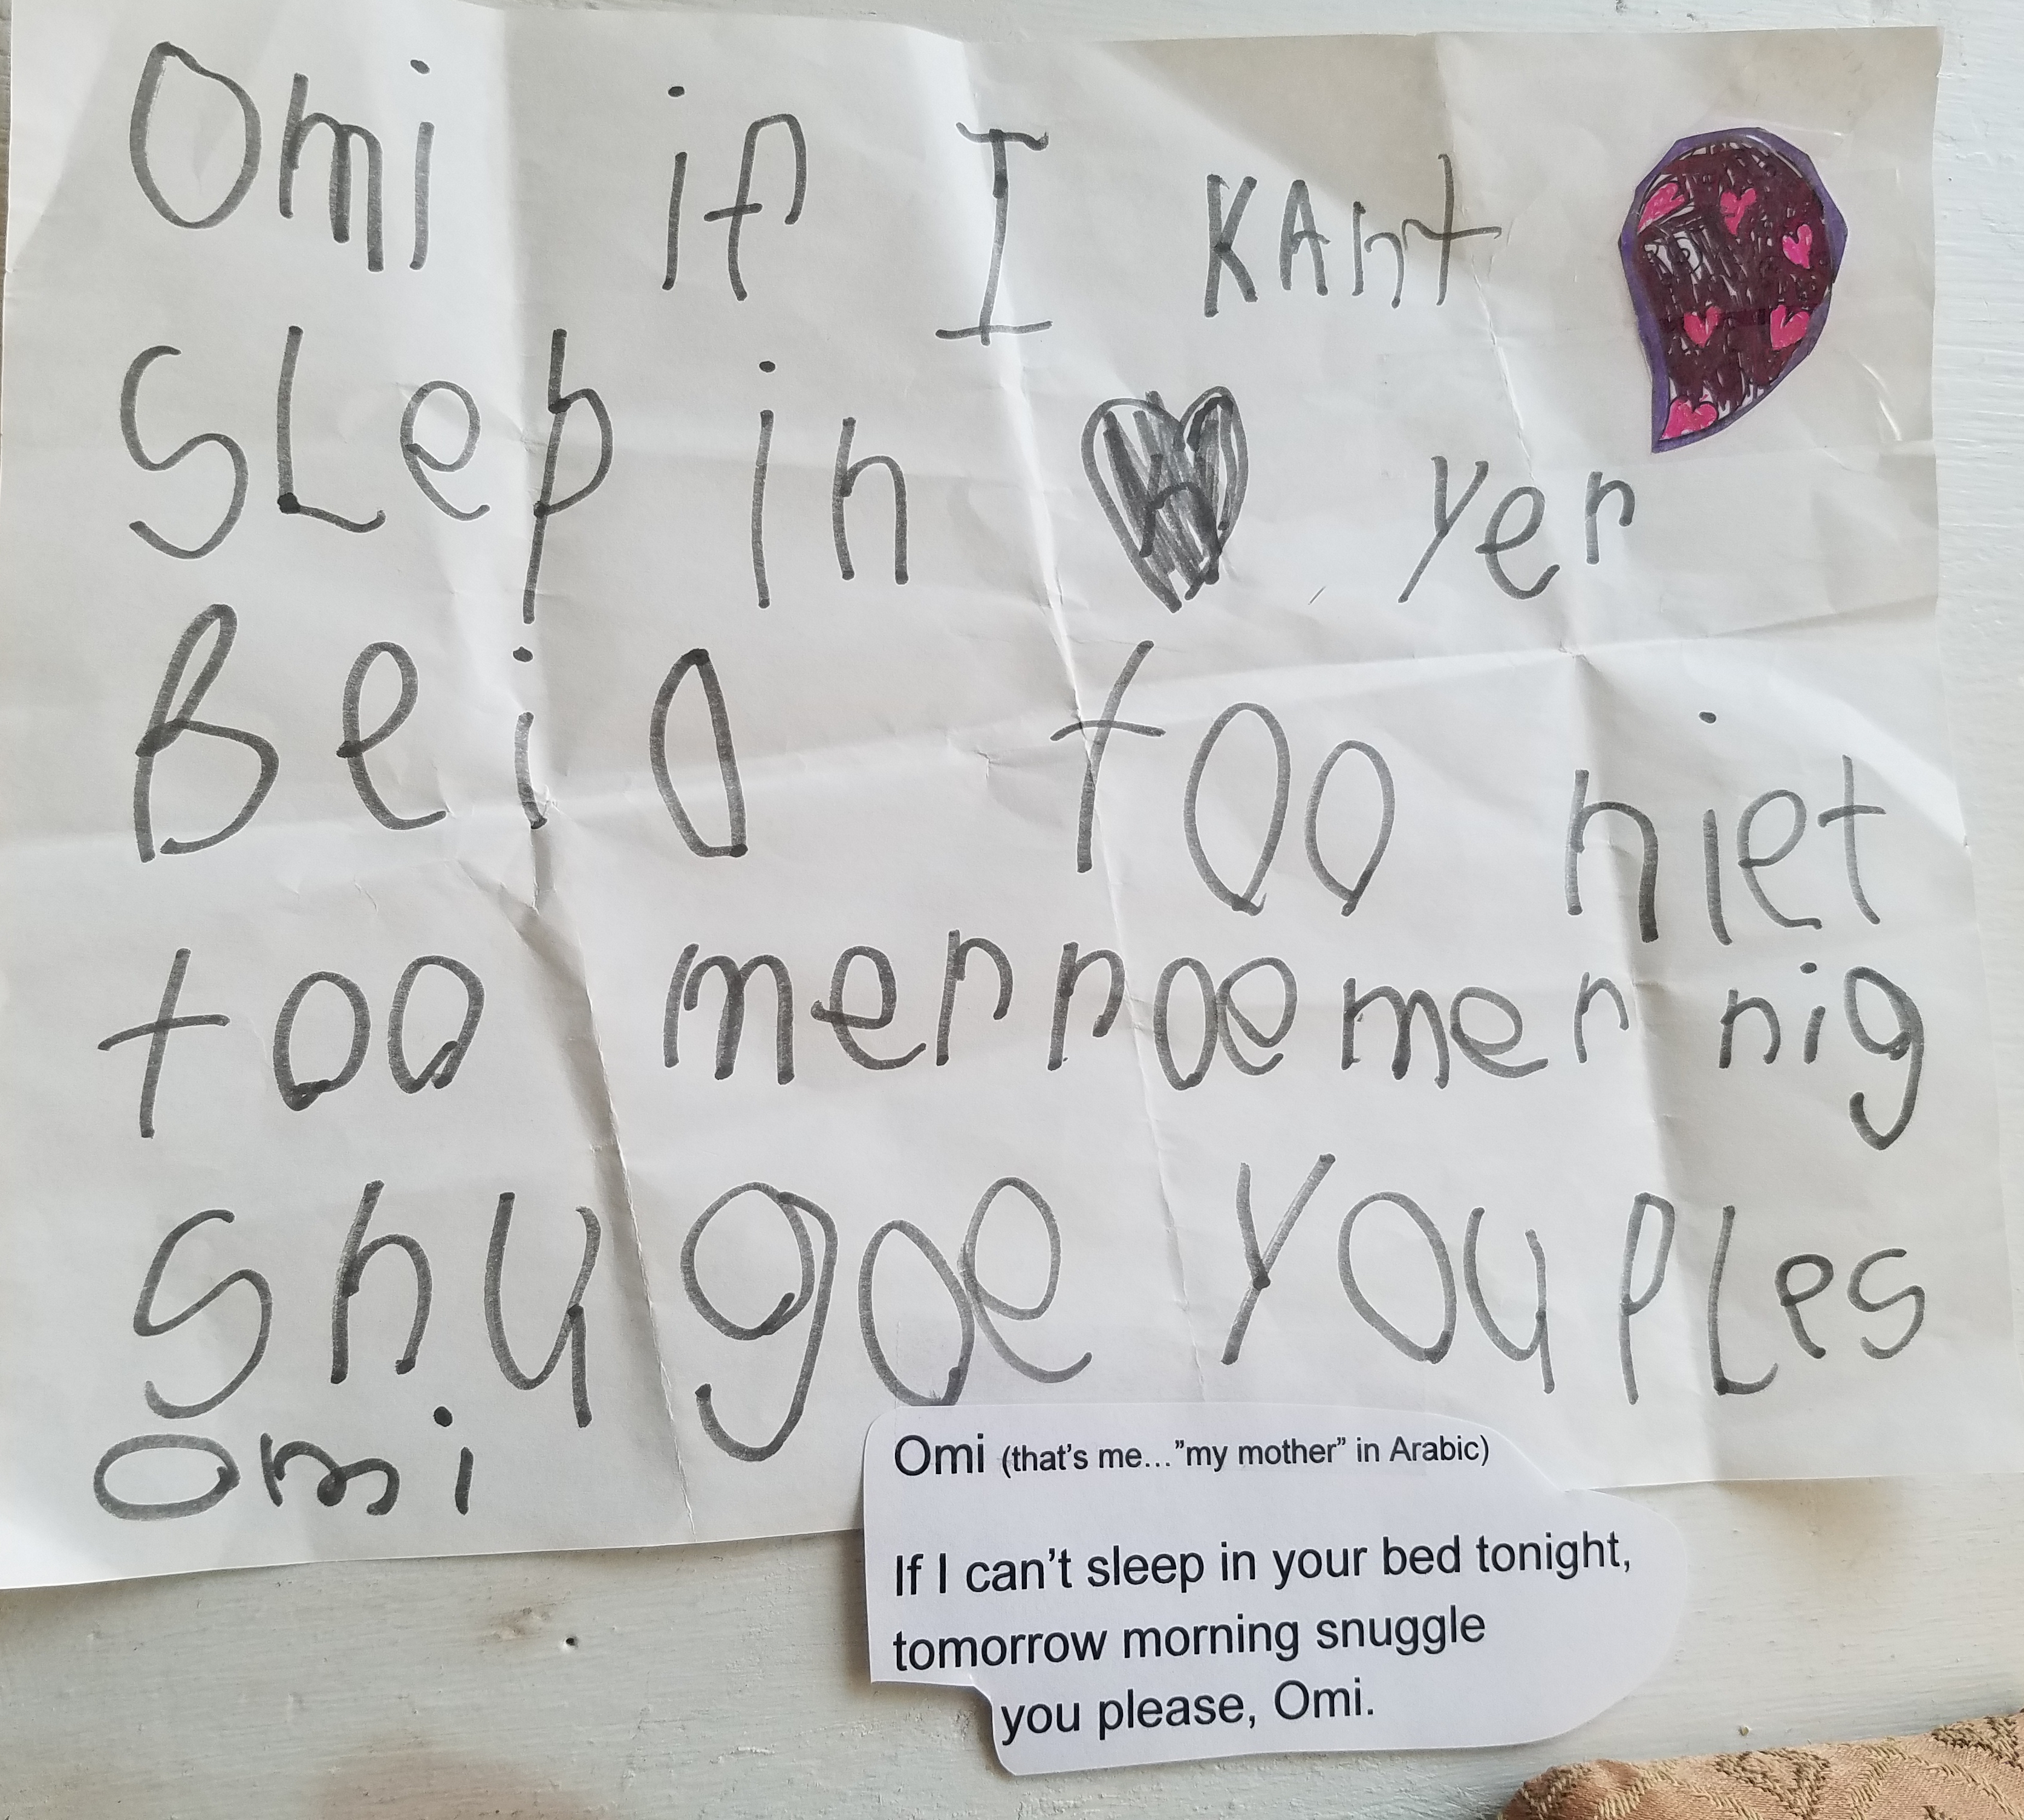 Omi if I KAnt
SLep in yer
Beid too niet
too merroe mernnig
snugoe YOU PLes
Omi
Omi (that's me..."my mother" in Arabic)
If I can't sleep in your bed tonight,
tomorrow morning snuggle
you please, Omi.